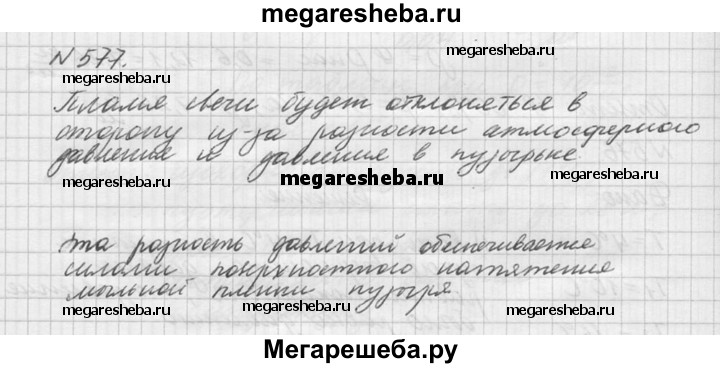 megaresheba.ru
N 577.
megaresheba.ru megaresheba.ru
Пламя свечи будет отклоняться в
сторону из-за разности атмосферного
давления и давления в пузырьке.
megaresheba.ru megaresheba.ru megaresheba.ru
Эта разность давлений обеспечивается
силами поверхностного натяжения
мыльной пленки пузыря.
megaresheba.ru megaresheba.ru
Мегарешеба.ру